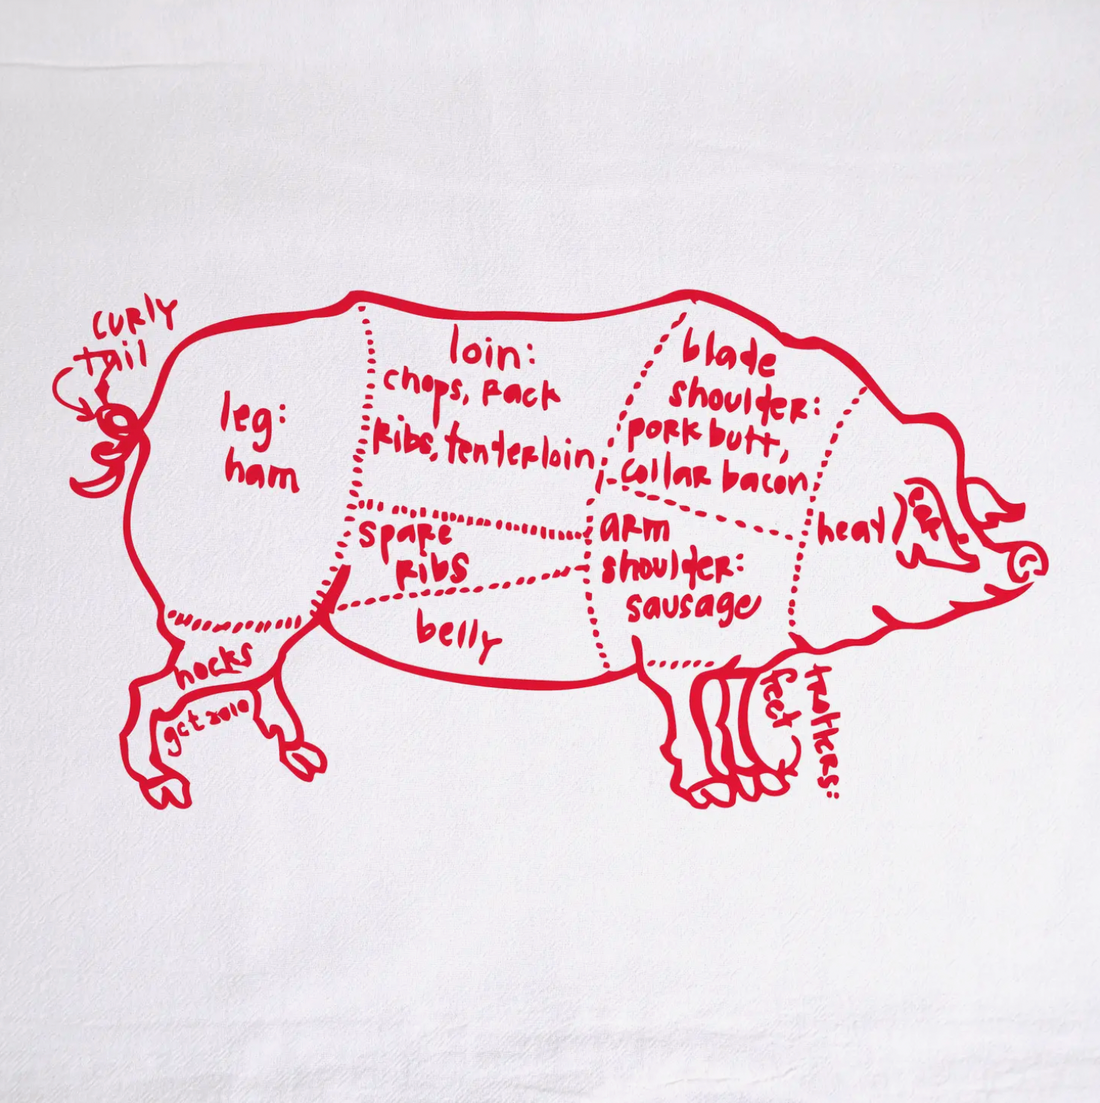 curly
tail
leg:
ham
loin:
chops, Rack
Ribs, tenderloin
blade
shoulder:
pork butt,
collar bacon
spare
Ribs
belly
arm
shoulder:
sausage
head
ear
hocks
gct 2010
trotters:
feet